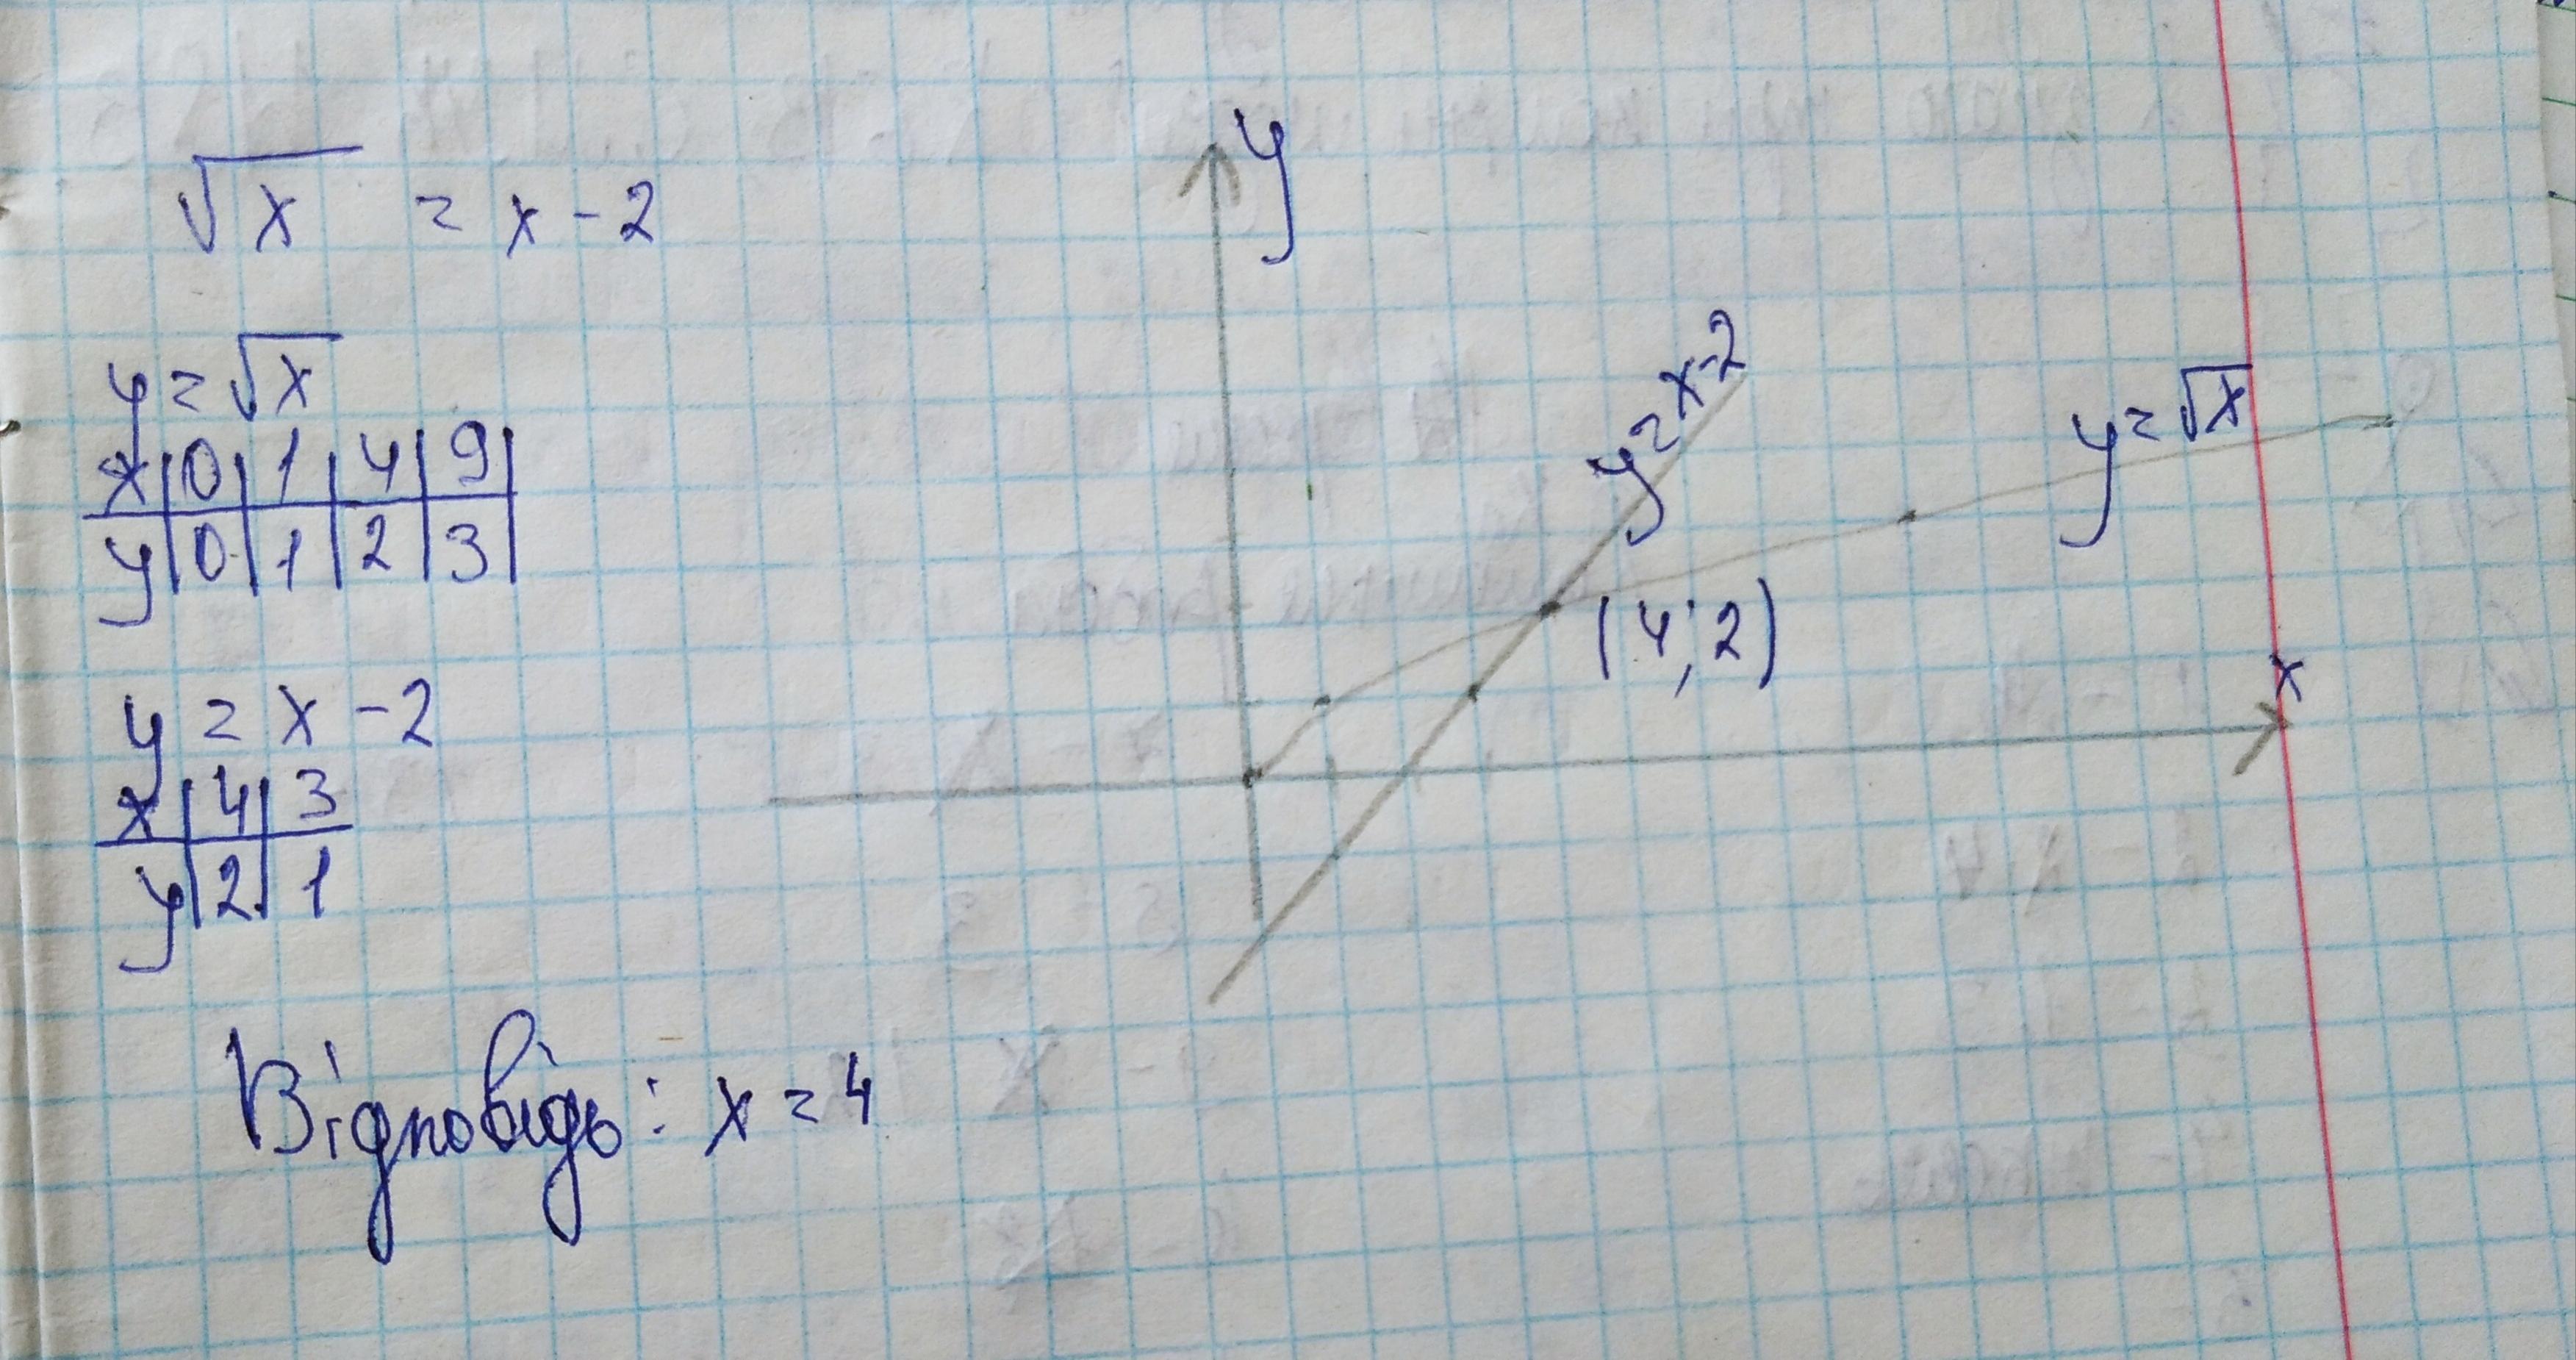 √x = x - 2
y = √x
x | 0 | 1 | 4 | 9 |
y | 0 | 1 | 2 | 3 |
y = x - 2
x | 4 | 3
y | 2 | 1
Відповідь: x = 4
y
y = x-2
y = √x
(4; 2)
x